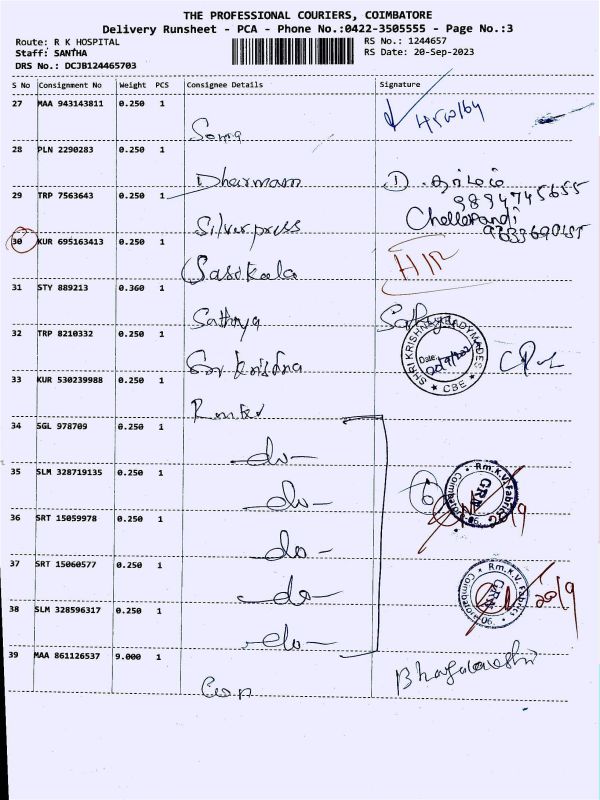 THE PROFESSIONAL COURIERS, COIMBATORE
Delivery Runsheet - PCA - Phone No.:0422-3505555 - Page No.:3
Route: R K HOSPITAL
Staff: SANTHA
DRS No.: DCJB124465703
RS No.: 1244657
RS Date: 20-Sep-2023
S No Consignment No Weight PCS Consignee Details Signature
27 MAA 943143811 0.250 1
28 PLN 2290283 0.250 1
Dharmam
29 TRP 7563643 0.250 1
9894745655
Silver press
30 KUR 695163413 0.250 1
Sasikala
31 STY 889213 0.360 1
Sathya
32 TRP 8210332 0.250 1
SHRI KRISHNA
Date:
CBE
Sri Krishna
33 KUR 530239988 0.250 1
34 SGL 978709 0.250 1
-do-
35 SLM 328719135 0.250 1
-do-
6
Rm.K.V. Fabrics
GRN
Coimbatore
36 SRT 15059978 0.250 1
-do-
37 SRT 15060577 0.250 1
-do-
Rm.K.V. Fabrics
GRN
Coimbatore 06.
20/9
38 SLM 328596317 0.250 1
-do-
39 MAA 861126537 9.000 1